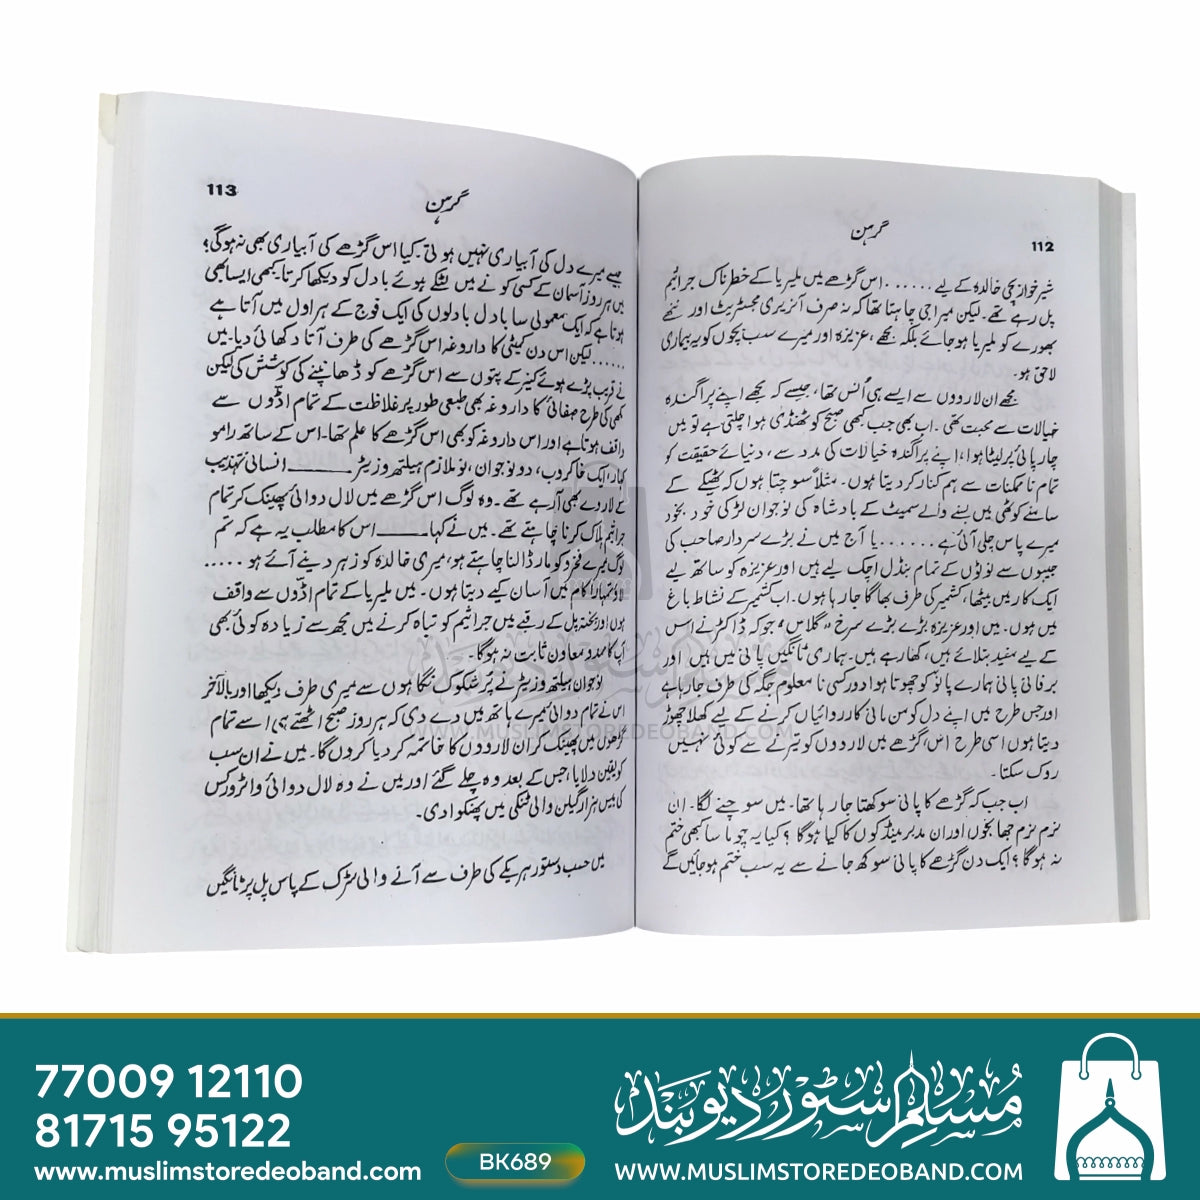 گرہن
112
شیرخوار بچی خالدہ کے لیے...... اس گڑھے میں ملیریا کے خطرناک جراثیم
پل رہے تھے۔ لیکن میرا جی چاہتا تھا کہ نہ صرف آنریری مجسٹریٹ اور ننھے
بھورے کو ملیریا ہو جائے بلکہ مجھے، عزیزہ اور میرے سب بچوں کو یہ بیماری
لاحق ہو۔
مجھے ان لارووں سے ایسے ہی اُنس تھا، جیسے کہ مجھے اپنے پراگندہ
خیالات سے محبت تھی۔ اب بھی جب کبھی صبح کو ٹھنڈی ہوا چلتی ہے تو میں
چارپائی پر لیٹا ہوا، اپنے پراگندہ خیالات کی مدد سے، دنیائے حقیقت کو
تمام ناممکنات سے ہم کنار کر دیتا ہوں۔ مثلاً سوچتا ہوں کہ ٹھیکے کے
سامنے کوٹھی میں بسنے والے سمیٹ کے بادشاہ کی نوجوان لڑکی خود بخود
میرے پاس چلی آئی ہے...... یا آج میں نے بڑے سردار صاحب کی
جیبوں سے نوٹوں کے تمام بنڈل اچک لیے ہیں اور عزیزہ کو ساتھ لیے
ایک کار میں بیٹھا، کشمیر کی طرف بھاگا جا رہا ہوں۔ اب کشمیر کے نشاط باغ
میں ہوں۔ میں اور عزیزہ بڑے بڑے سرخ "گلاس" جو کہ ڈاکٹر نے اس
کے لیے مفید بتلائے ہیں، کھا رہے ہیں۔ ہماری ٹانگیں پانی میں ہیں اور
برفانی پانی ہمارے پاؤں کو چھوتا ہوا دور کسی نامعلوم جگہ کی طرف جا رہا ہے
اور جس طرح میں اپنے دل کو من مانی کارروائیاں کرنے کے لیے کھلا چھوڑ
دیتا ہوں اسی طرح اس گڑھے میں لارووں کو تیرنے سے کوئی نہیں
روک سکتا۔
اب جب کہ گڑھے کا پانی سوکھتا جا رہا تھا۔ میں سوچنے لگا۔ ان
نرم نرم جھانجوں اور ان مدبر مینڈکوں کا کیا ہوگا؟ کیا یہ چوماسا کبھی ختم
نہ ہوگا؟ ایک دن گڑھے کا پانی سوکھ جانے سے یہ سب ختم ہو جائیں گے
گرہن
113
جیسے میرے دل کی آبیاری نہیں ہوتی۔ کیا اس گڑھے کی آبیاری بھی نہ ہوگی؟
میں ہر روز آسمان کے کسی کونے میں لٹکے ہوئے بادل کو دیکھا کرتا۔ کبھی ایسا بھی
ہوتا ہے کہ ایک معمولی سا بادل بادلوں کی ایک فوج کے ہراول میں آتا ہے
...... لیکن اس دن کمیٹی کا داروغہ اس گڑھے کی طرف آتا دکھائی دیا۔ میں
نے قریب پڑے ہوئے کنیر کے پتوں سے اس گڑھے کو ڈھانپنے کی کوشش کی لیکن
مکھی کی طرح صفائی کا داروغہ بھی طبعی طور پر غلاظت کے تمام اڈوں سے
واقف ہوتا ہے اور اس داروغہ کو بھی اس گڑھے کا علم تھا۔ اس کے ساتھ رامو
کہار، ایک خاکروب، دو نوجوان، نو ملازم ہیلتھ وزیٹر ـــــ انسانی تہذیب
کے لاروے بھی آ رہے تھے۔ وہ لوگ اس گڑھے میں لال دوائی پھینک کر تمام
جراثیم ہلاک کرنا چاہتے تھے۔ میں نے کہا ـــــ اس کا مطلب یہ ہے کہ تم
لوگ میرے فخرو کو مار ڈالنا چاہتے ہو، میری خالدہ کو زہر دینے آئے ہو.....
لاؤ تمہارا کام میں آسان کیے دیتا ہوں۔ میں ملیریا کے تمام اڈوں سے واقف
ہوں اور پختہ پل کے رقبے میں جراثیم کو تباہ کرنے میں مجھ سے زیادہ کوئی بھی
آپ کا ممد و معاون ثابت نہ ہوگا۔
نوجوان ہیلتھ وزیٹر نے پر شکوک نگاہوں سے میری طرف دیکھا اور بالآخر
اس نے تمام دوائی میرے ہاتھ میں دے دی کہ ہر روز صبح اٹھتے ہی اسے تمام
گڑھوں میں پھینک کر ان لارووں کا خاتمہ کر دیا کروں گا۔ میں نے ان سب
کو یقین دلایا، جس کے بعد وہ چلے گئے اور میں نے وہ لال دوائی واٹر ورکس
کی بیس ہزار گیلن والی ٹنکی میں پھنکوا دی۔
میں حسب دستور ہریکے کی طرف سے آنے والی سڑک کے پاس پل پر ٹانگیں
WWW.MUSLIMSTOREDEOBAND.COM
77009 12110
81715 95122
www.muslimstoredeoband.com
BK689
مسلم سٹور دیوبند
WWW.MUSLIMSTOREDEOBAND.COM